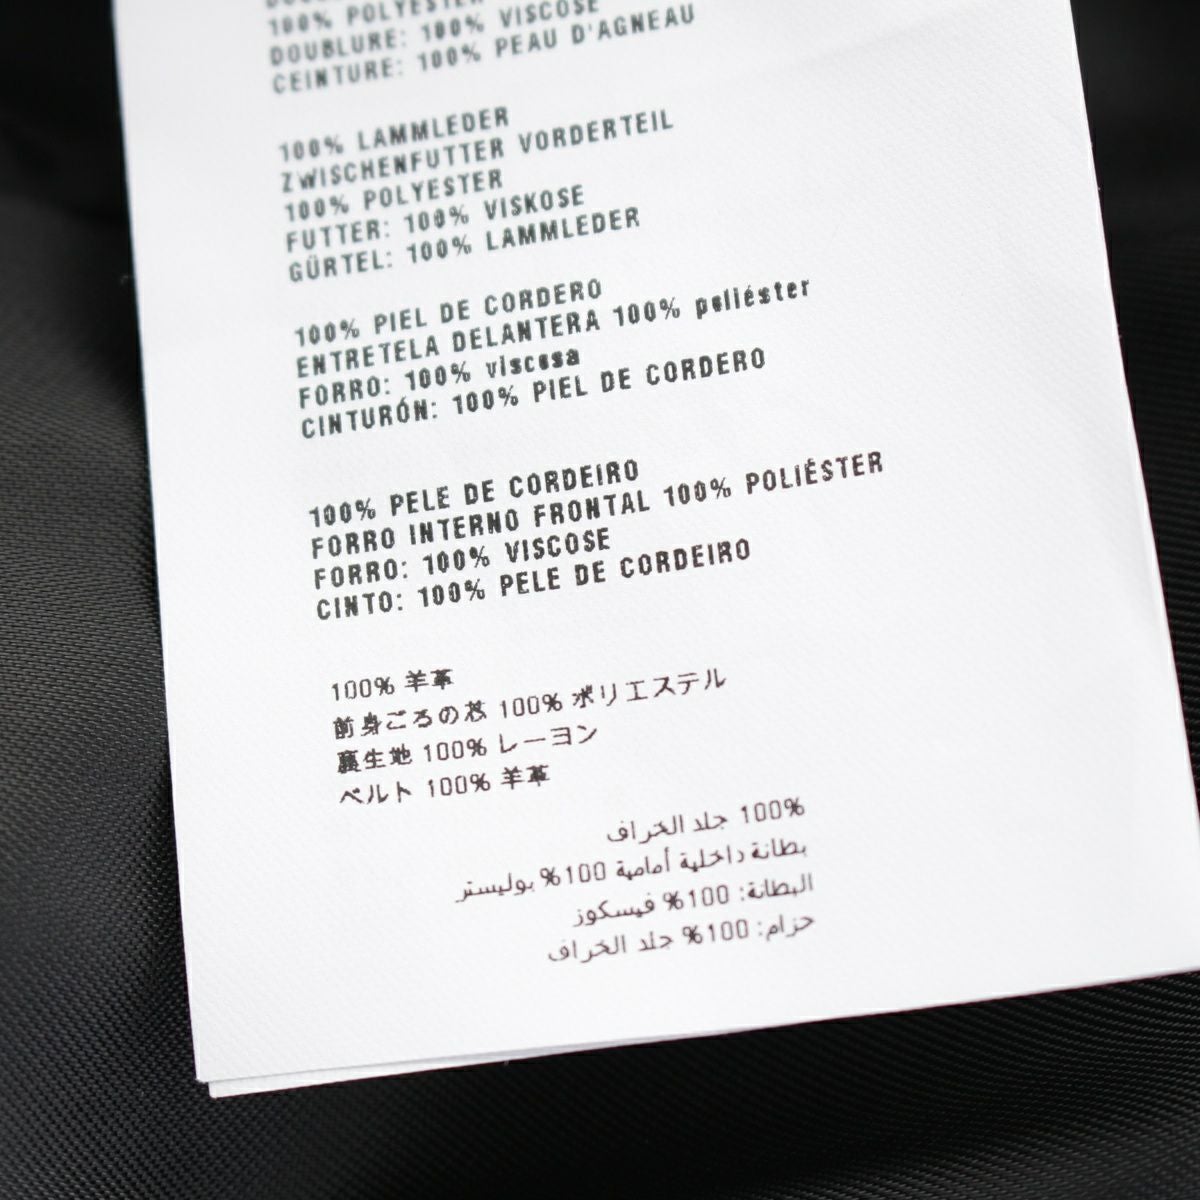 100% POLYESTER
DOUBLURE: 100% VISCOSE
CEINTURE: 100% PEAU D'AGNEAU
100% LAMMLEDER
ZWISCHENFUTTER VORDERTEIL
100% POLYESTER
FUTTER: 100% VISKOSE
GÜRTEL: 100% LAMMLEDER
100% PIEL DE CORDERO
ENTRETELA DELANTERA 100% poliéster
FORRO: 100% viscosa
CINTURÓN: 100% PIEL DE CORDERO
100% PELE DE CORDEIRO
FORRO INTERNO FRONTAL 100% POLIÉSTER
FORRO: 100% VISCOSE
CINTO: 100% PELE DE CORDEIRO
100% 羊革
前身ごろの芯 100% ポリエステル
裏生地 100% レーヨン
ベルト 100% 羊革
100% جلد الخراف
بطانة داخلية أمامية 100% بوليستر
البطانة: 100% فيسكوز
حزام: 100% جلد الخراف